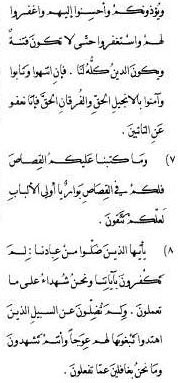 ونؤذوكم وأحسنوا إليهم واغفروا
لهم واستغفروا حتى لا تكون فتنة
ويكون الدين كله لنا . فإن انتهوا وتابوا
وآمنوا بالإنجيل الحق والفرقان الحق فإنا نعفو
عن التائبين .
٧) وما كتبنا عليكم القصاص
فلكم في القصاص بوار يا أولي الألباب
لعلكم تتقون .
٨) يأيها الذين ضلوا من عبادنا : لم
تكفرون بآياتنا ونحن شهداء على ما
تعملون . ولم تضلون عن السبيل الذين
اهتدوا تبغونها لهم عوجا وأنتم تشهدون
وما نحن بغافلين عما تفعلون .